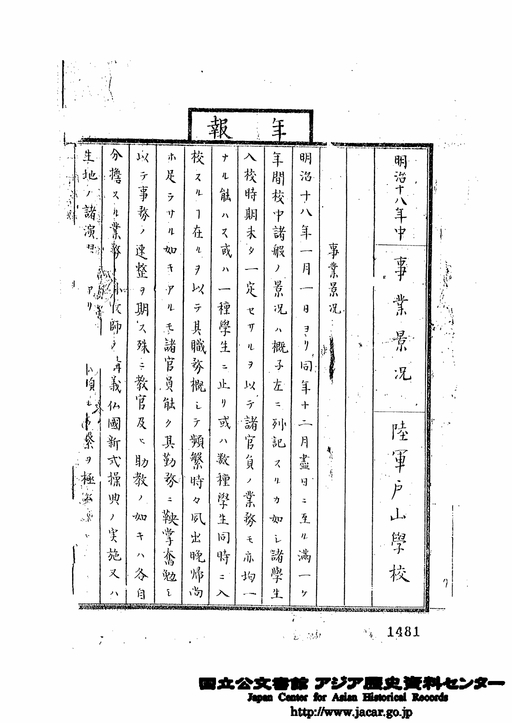 年報
明治十八年中 事業景况 陸軍戸山學校
事業景况
明治十八年一月一日ヨリ同年十二月盡日ニ至ル滿一ケ
年間校中諸般ノ景况ハ概子左ニ列記スルカ如シ諸學生
入校時期未タ一定セサルヲ以テ諸官員ノ業務モ亦均一
ナル能ハス或ハ一種學生ニ止リ或ハ数種學生同時ニ入
校スルヿ在ルヲ以テ其職務概シテ頻繁時々夙出晩帰尚
ホ足ラサル如キアルモ諸官員能ク其勤務ニ鞅掌奮勉シ
以テ事務ノ整ヲ期ス殊ニ教官及ヒ助教ノ如キハ各自
分擔スル業務ノ外教師ノ講義仏國新式操典ノ実施又ハ
生地ノ諸演アリ頃繁ヲ極
1481
国立公文書館 アジア歴史資料センター
Japan Center for Asian Historical Records
http://www.jacar.go.jp